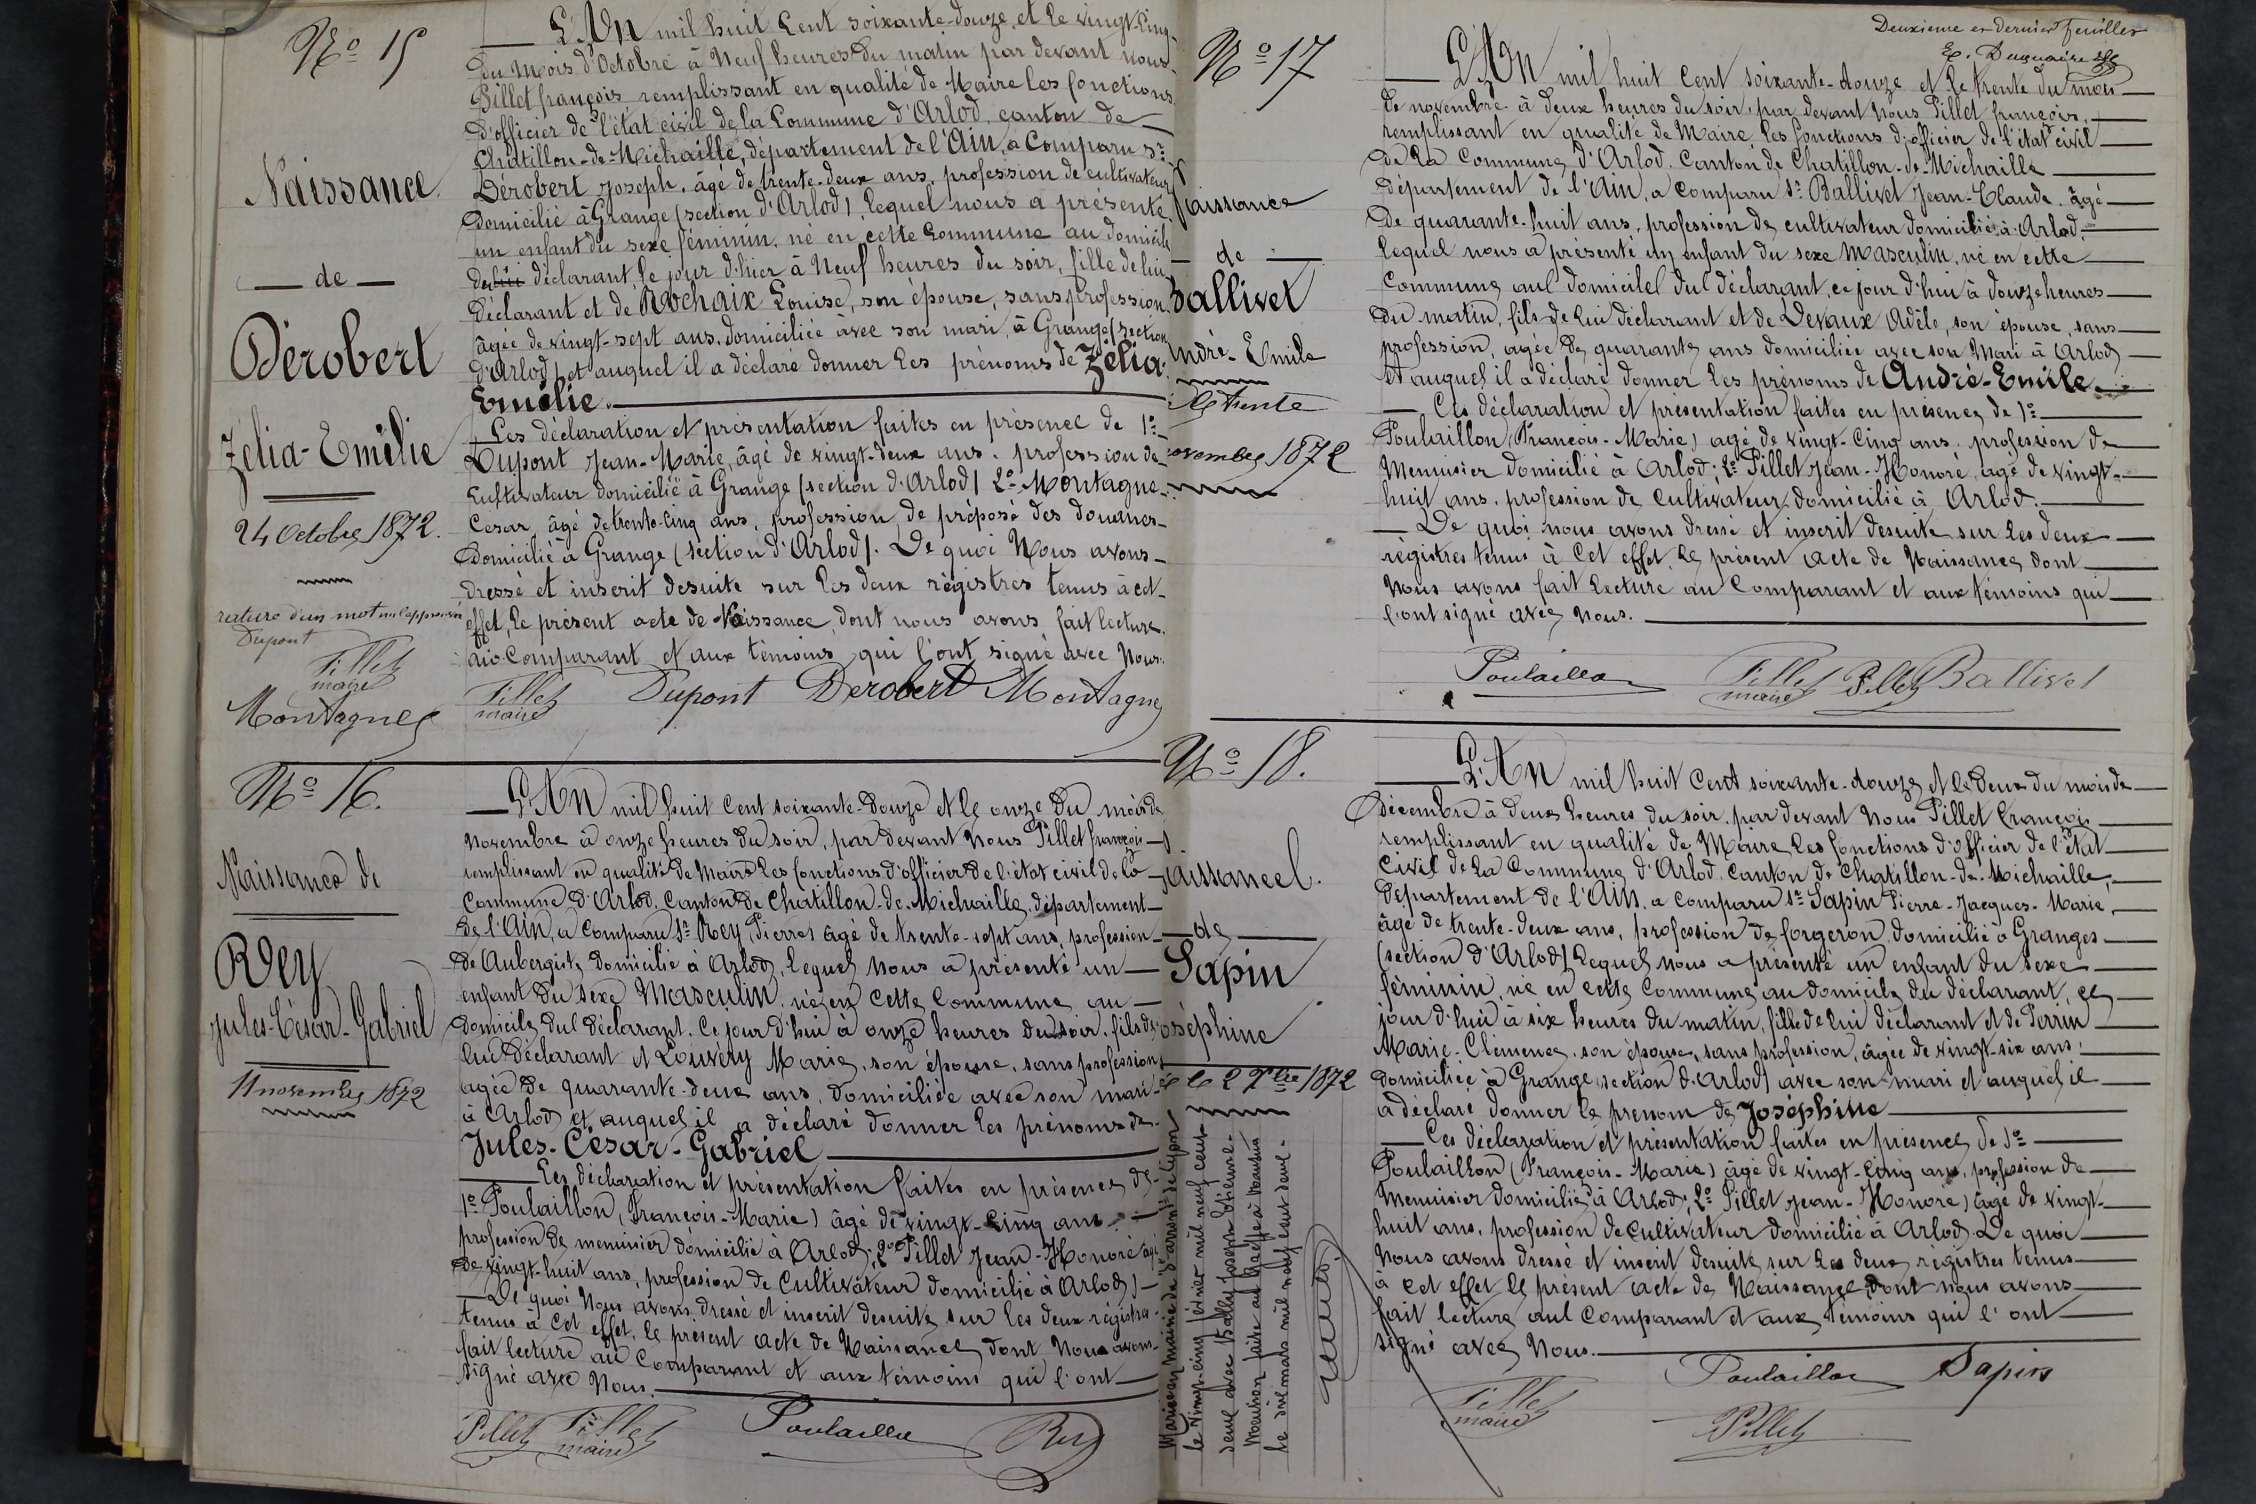 No 15
Naissance
de
Dérobert
Zélia-Emélie
24 Octobre 1872.
rature d'un mot nul approuvé
Dupont
Pillet
maire
Montagne
L'An mil huit cent soixante-douze et le vingt-cinq
du mois d'Octobre à Neuf heures du matin par devant nous
Pillet françois, remplissant en qualité de Maire les fonctions
d'officier de l'état civil de la Commune d'Arlod, canton de
Châtillon-de-Michaille, département de l'Ain, a Comparu Sr
Dérobert Joseph, âgé de trente-deux ans, profession de cultivateur
Domicilié à Grange (section d'Arlod), lequel nous a présenté
un enfant du sexe féminin, né en cette Commune au domicile
du déclarant le jour d'hier à Neuf heures du soir, fille de lui
déclarant et de Rochaix Louise, son épouse, sans profession
âgée de vingt-sept ans, domiciliée avec son mari, à Grange (section
d'Arlod) et auquel il a déclaré donner les prénoms de Zélia-
Emélie.
Les déclaration et présentation faites en présence de 1o
Dupont Jean-Marie, âgé de vingt-deux ans, profession de
Cultivateur domicilié à Grange (section d'Arlod) 2o Montagne
Cesar, âgé de trente-cinq ans, profession de préposé des douanes
Domicilié à Grange (section d'Arlod). De quoi Nous avons
dressé et inscrit desuite sur les deux régistres tenus à cet
effet, le présent acte de Naissance, dont nous avons fait lecture
au Comparant et aux témoins qui l'ont signé avec Nous.
Pillet
maire
Dupont Dérobert Montagne
No 16.
Naissance de
Rey
Jules-César-Gabriel
11 novembre 1872
L'An mil huit Cent soixante-Douze et le onze du mois de
Novembre à onze heures du soir, par devant Nous Pillet françois
remplissant en qualité de Maire les fonctions d'officier de l'état civil de la
Commune d'Arlod, Canton de Chatillon-de-Michaille, département
de l'Ain, a Comparu Sr Rey (Pierre) âgé de trente-sept ans, profession
de Aubergiste domicilié à Arlod, lequel Nous à présenté un
enfant du sexe Masculin, né en cette Commune au
domicile du déclarant, ce jour d'hui à onze heures du soir, fils de
lui déclarant et Louvery Marie, son épouse, sans profession
agée de quarante-deux ans, domiciliée avec son mari
à Arlod et auquel il a déclaré donner les prénoms de
Jules-César-Gabriel
Les déclaration et présentation faites en présence de
1o Poulaillon (François-Marie) âgé de vingt-cinq ans,
profession de menuisier domicilié à Arlod; 2o Pillet Jean-Honoré âgé
de vingt-huit ans, profession de Cultivateur domicilié à Arlod)
De quoi Nous avons dressé et inscrit desuite sur les deux régistres
tenus à cet effet, le présent acte de Naissance, dont Nous avons
fait lecture au Comparant et aux témoins qui l'ont
signé avec Nous.
Pillet Pillet
maire
Poulaillon Rey
No 17
Naissance
de
Ballivet
André-Emile
le trente
novembre 1872
Deuxième et Dernier feuillet
L'An mil huit Cent soixante-douze et le trente du mois
de novembre à deux heures du soir, par devant Nous Pillet françois,
remplissant en qualité de Maire les fonctions d'officier de l'état civil
de la Commune d'Arlod, Canton de Chatillon-de-Michaille
département de l'Ain, a comparu Sr Ballivet Jean-Claude, âgé
de quarante-huit ans, profession de cultivateur domicilié à Arlod,
lequel nous a présenté un enfant du sexe Masculin, né en cette
Commune au domicile du déclarant, ce jour d'hui à douze heures
du matin, fils de lui déclarant et de Devaux Adèle, son épouse, sans
profession, agée de quarante ans domiciliée avec son Mari à Arlod
et auquel il a déclaré donner les prénoms de André-Emile
Ces déclaration et présentation faites en présence de 1o
Poulaillon (François-Marie) agé de vingt-cinq ans, profession de
Menuisier domicilié à Arlod; 2o Pillet Jean-Honoré, agé de vingt-
huit ans, profession de Cultivateur domicilié à Arlod.
De quoi nous avons dressé et inscrit desuite sur les deux
régistres tenus à cet effet, le présent acte de Naissance dont
Nous avons fait lecture au Comparant et aux témoins qui
l'ont signé avec Nous.
Poulaillon Pillet
maire
Pillet Ballivet
No 18.
Naissance
de
Sapin
Joséphine
le 2 Xbre 1872
Mariée en mairie du arrondt de Lyon
le vingt-cinq février mil neuf cent
deux avec Bally Joseph Etienne.
Mention faite au Greffe à Nantua
le dix mars mil neuf cent deux.
L'An mil huit Cent soixante-douze et le Deux du mois de
Décembre à deux heures du soir, par devant Nous Pillet François
remplissant en qualité de Maire, les fonctions d'officier de l'état
Civil de la Commune d'Arlod, Canton de Chatillon-de-Michaille,
Département de l'Ain, a comparu Sr Sapin Pierre-Jacques-Marie,
âgé de trente-deux ans, profession de forgeron, domicilié à Granges
(section d'Arlod) lequel nous a présenté un enfant du sexe
féminin, né en cette Commune au domicile du déclarant, ce
jour d'hui à six heures du matin, fille de lui déclarant et de Perrin
Marie-Clémence, son épouse, sans profession, âgée de vingt-six ans,
domiciliée à Grange (section d'Arlod) avec son mari et auquel il
a déclaré donner le prenom de Joséphine
Ces déclaration et présentation faites en présence de 1o
Poulaillon (François-Marie) âgé de vingt-cinq ans, profession de
Menuisier domicilié à Arlod; 2o Pillet Jean-Honoré) âgé de vingt-
huit ans, profession de Cultivateur domicilié à Arlod. De quoi
Nous avons dressé et inscrit desuite sur les deux régistres tenus
à cet effet le présent acte de Naissance, dont nous avons
fait lecture au Comparant et aux témoins qui l'ont
signé avec Nous.
Poulaillon Sapin
Pillet
maire
Pillet